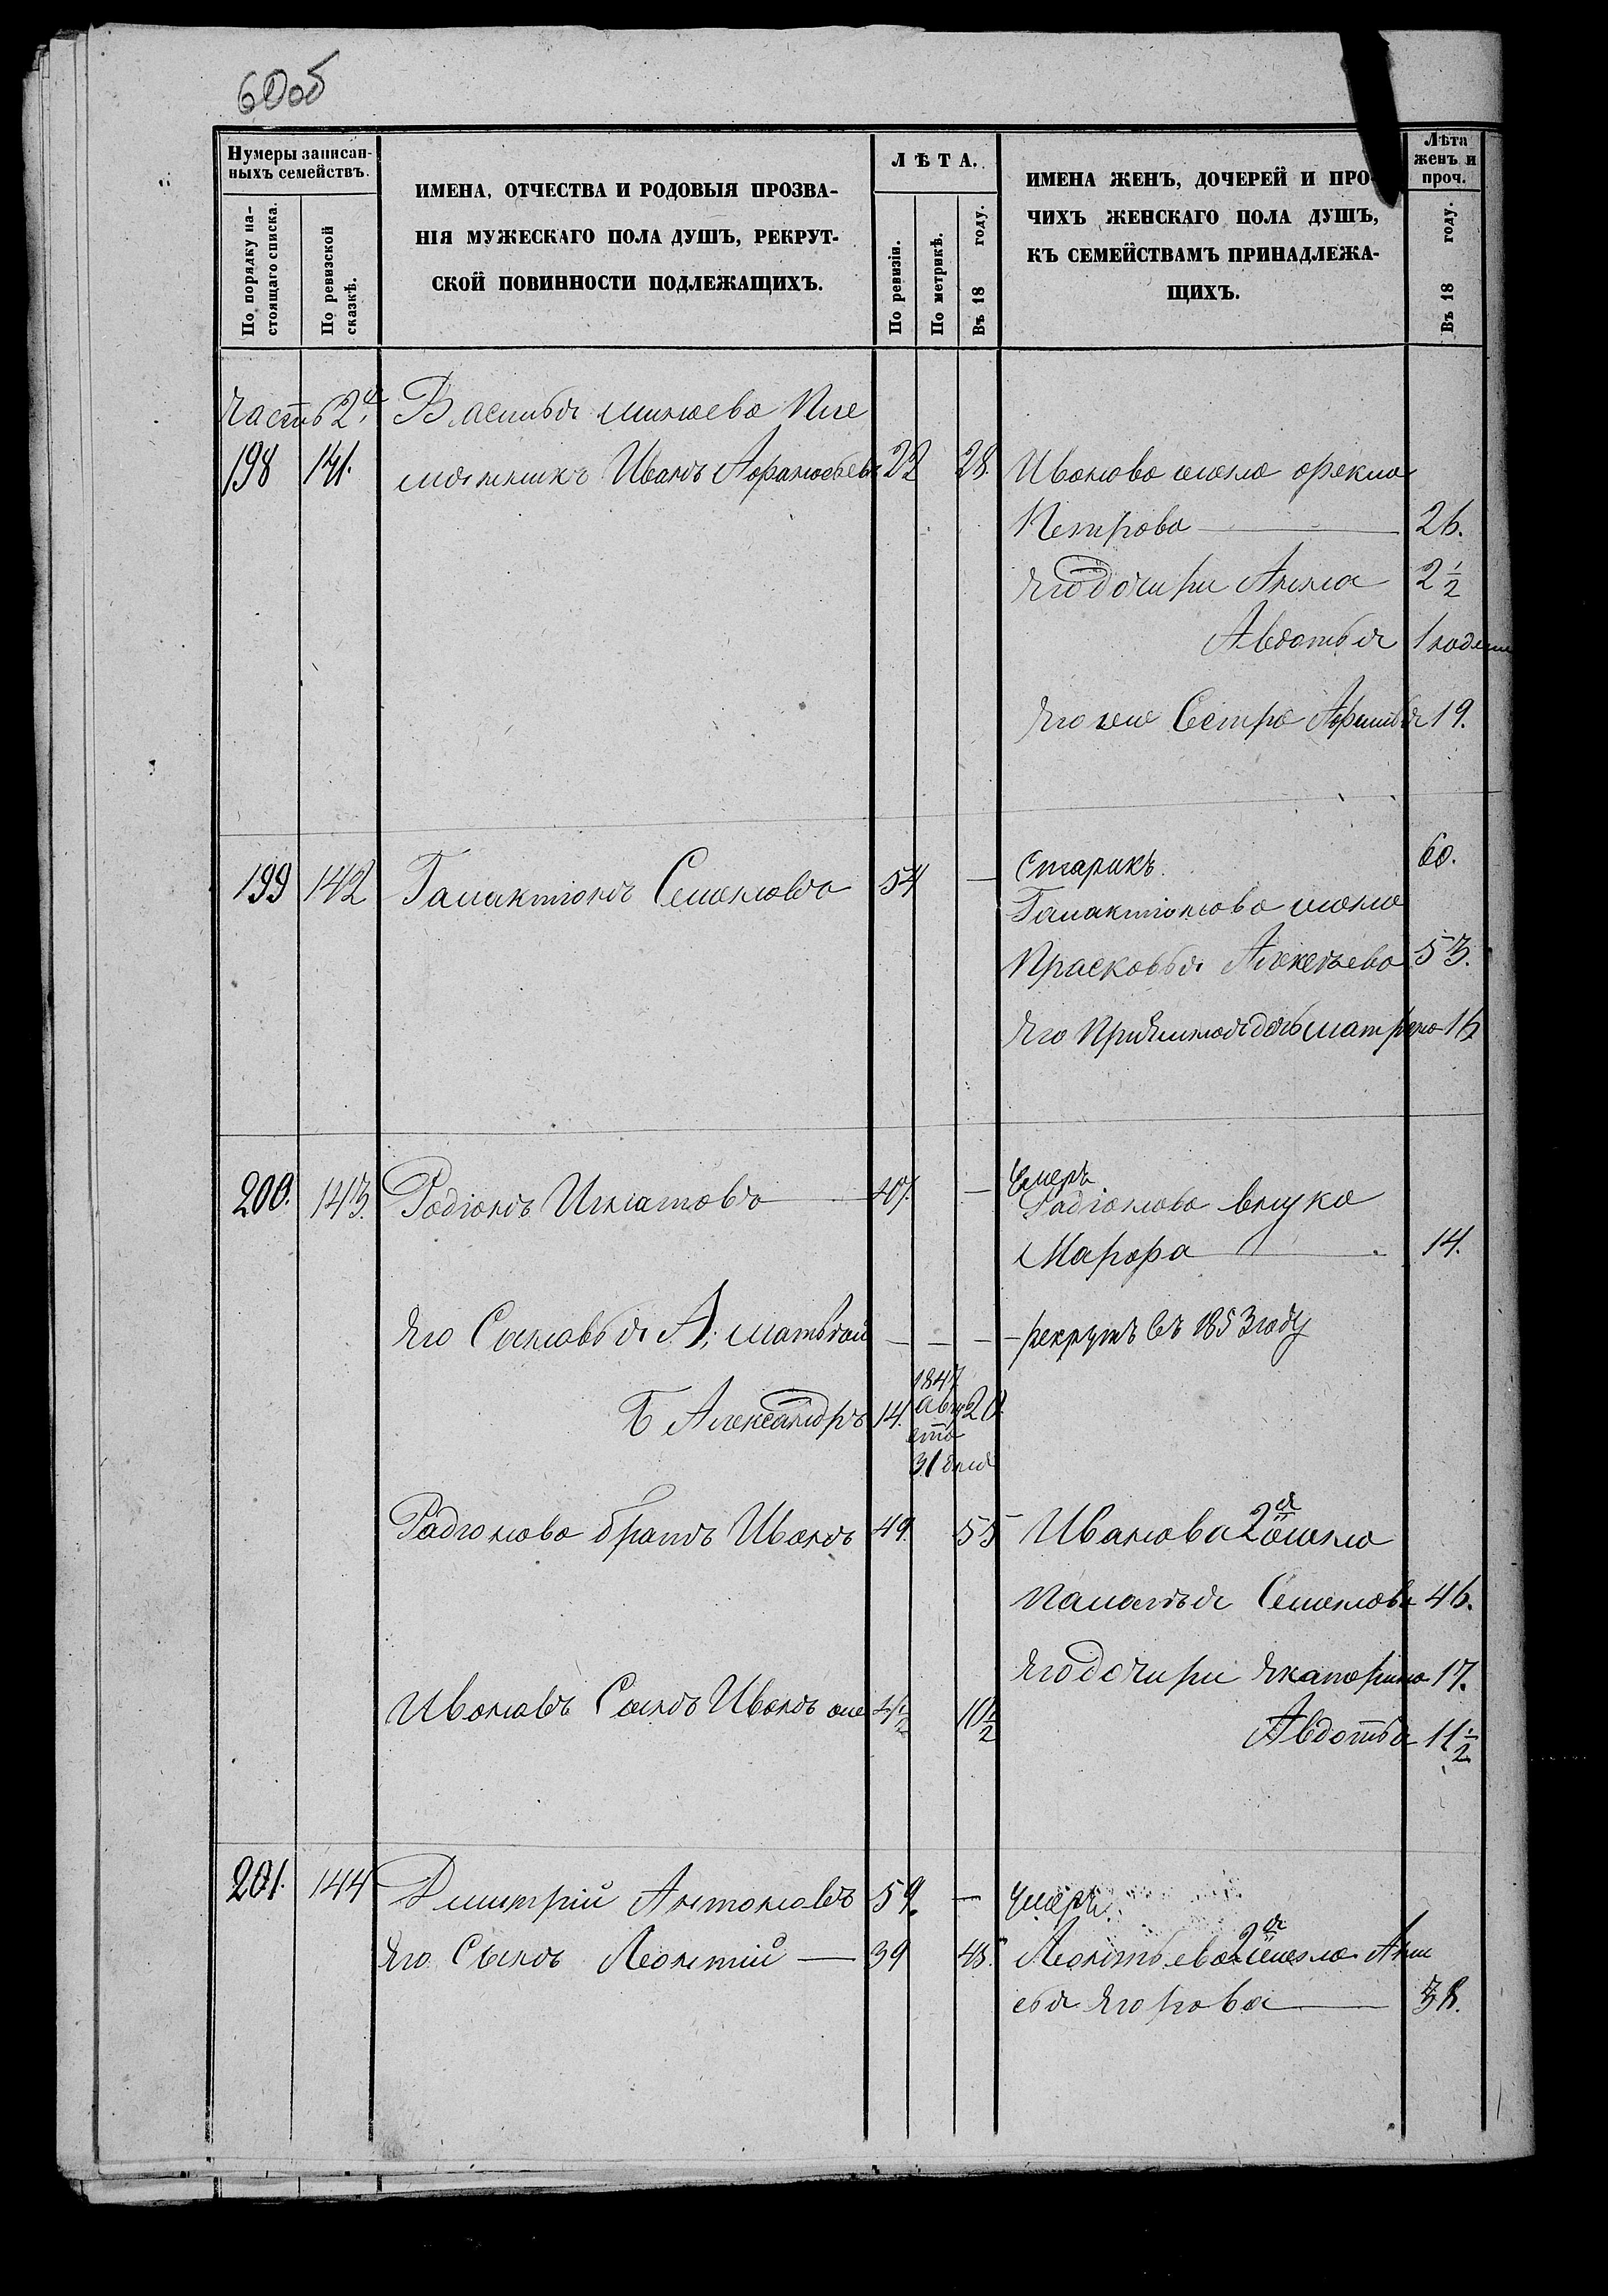 60об
Нумеры записан-
ныхъ семействъ.
По порядку на-
стоящаго списка.
По ревизской
сказкѣ.
ИМЕНА, ОТЧЕСТВА И РОДОВЫЯ ПРОЗВА-
НІЯ МУЖЕСКАГО ПОЛА ДУШЪ, РЕКРУТ-
СКОЙ ПОВИННОСТИ ПОДЛЕЖАЩИХЪ.
ЛѢТА.
По ревизіи.
По метрикѣ.
Въ 18 году.
ИМЕНА ЖЕНЪ, ДОЧЕРЕЙ И ПРО-
ЧИХЪ ЖЕНСКАГО ПОЛА ДУШЪ,
КЪ СЕМЕЙСТВАМЪ ПРИНАДЛЕЖА-
ЩИХЪ.
Лѣта
женъ и
проч.
Въ 18 году.
Часть 2я Василья Минаева Пле
198 141. мянникъ Иванъ Афанасьевъ 22 28. Иванова жена Фекла
Петрова 26.
Яго дочири Анна 2 1/2
Авдотья 1
Яго же Сестра 19.
Старикъ. 60.
199 142 Галактіонъ Семеновъ 54 — Галактіонова жена
Прасковья Алексѣева 53.
Яго Пріемная дочь Матрена 16
Умеръ
200. 143. Родіонъ Игнатовъ 47. — Радіонова внука
Марфа 14.
Яго Сыновья А, Матвѣй — — — рекрутъ въ 1853 году
Б Александръ 14. 1847 Авгу 20.
ста
31 дня
Радіонова братъ Иванъ 49. 55 Иванова 2я жена
Палагѣя Семенова 46.
Яго дочири Якатерина 17.
Ивановъ Сынъ Иванъ же 4 1/2 10 1/2
Авдотья 11 1/2
201. 144 Дмитрій Антоновъ 59. — Умеръ.
Яго Сынъ Леонтій — 39 45. Леонтьева 2я жена Ани
сья Ягорова 38.